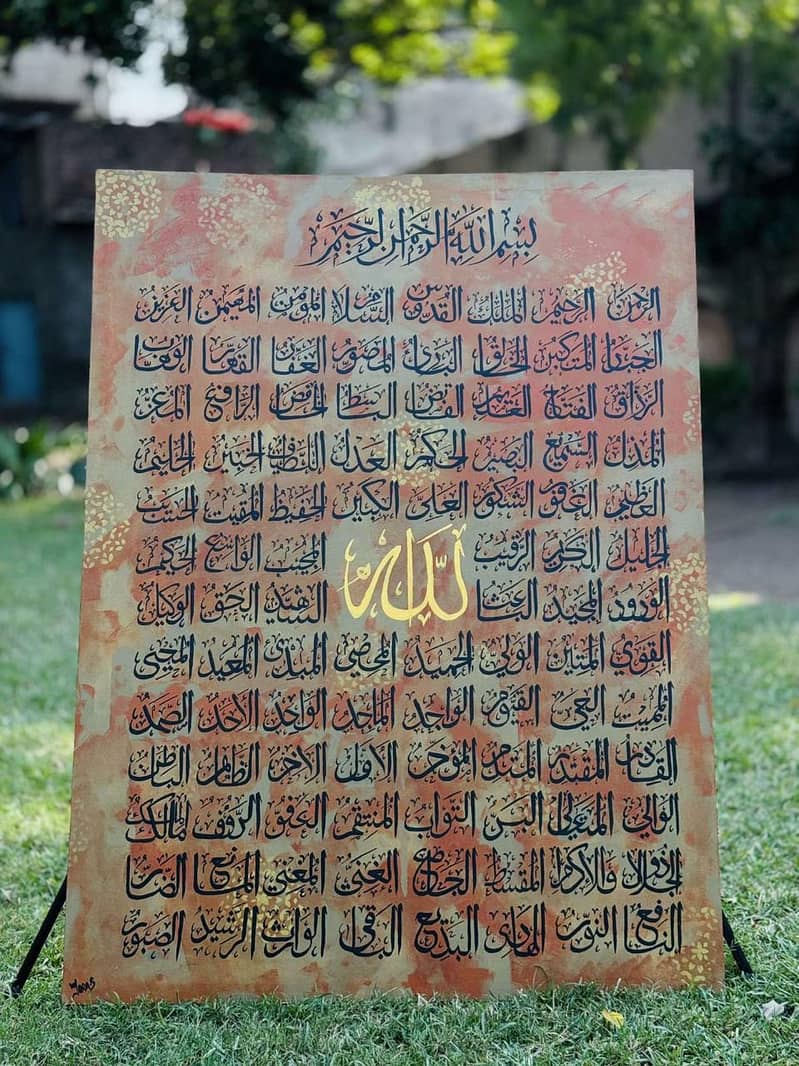 بِسْمِ اللهِ الرَّحْمٰنِ الرَّحِيْمِ
الرحمن الرحيم الملك القدوس السلام المؤمن المهيمن العزيز
الجبار المتكبر الخالق البارئ المصور الغفار القهار الوهاب
الرزاق الفتاح العليم القابض الباسط الخافض الرافع المعز
المذل السميع البصير الحكم العدل اللطيف الخبير الحليم
العظيم الغفور الشكور العلي الكبير الحفيظ المقيت الحسيب
الجليل الكريم الرقيب المجيب الواسع الحكيم
الله
الودود المجيد الباعث الشهيد الحق الوكيل
القوي المتين الولي الحميد المحصي المبدئ المعيد المحيي
المميت الحي القيوم الواجد الماجد الواحد الاحد الصمد
القادر المقتدر المقدم المؤخر الاول الاخر الظاهر الباطن
الوالي المتعالي البر التواب المنتقم العفو الرؤف مالك الملك
ذوالجلال والاكرام المقسط الجامع الغني المغني المانع الضار
النافع النور الهادي البديع الباقي الوارث الرشيد الصبور